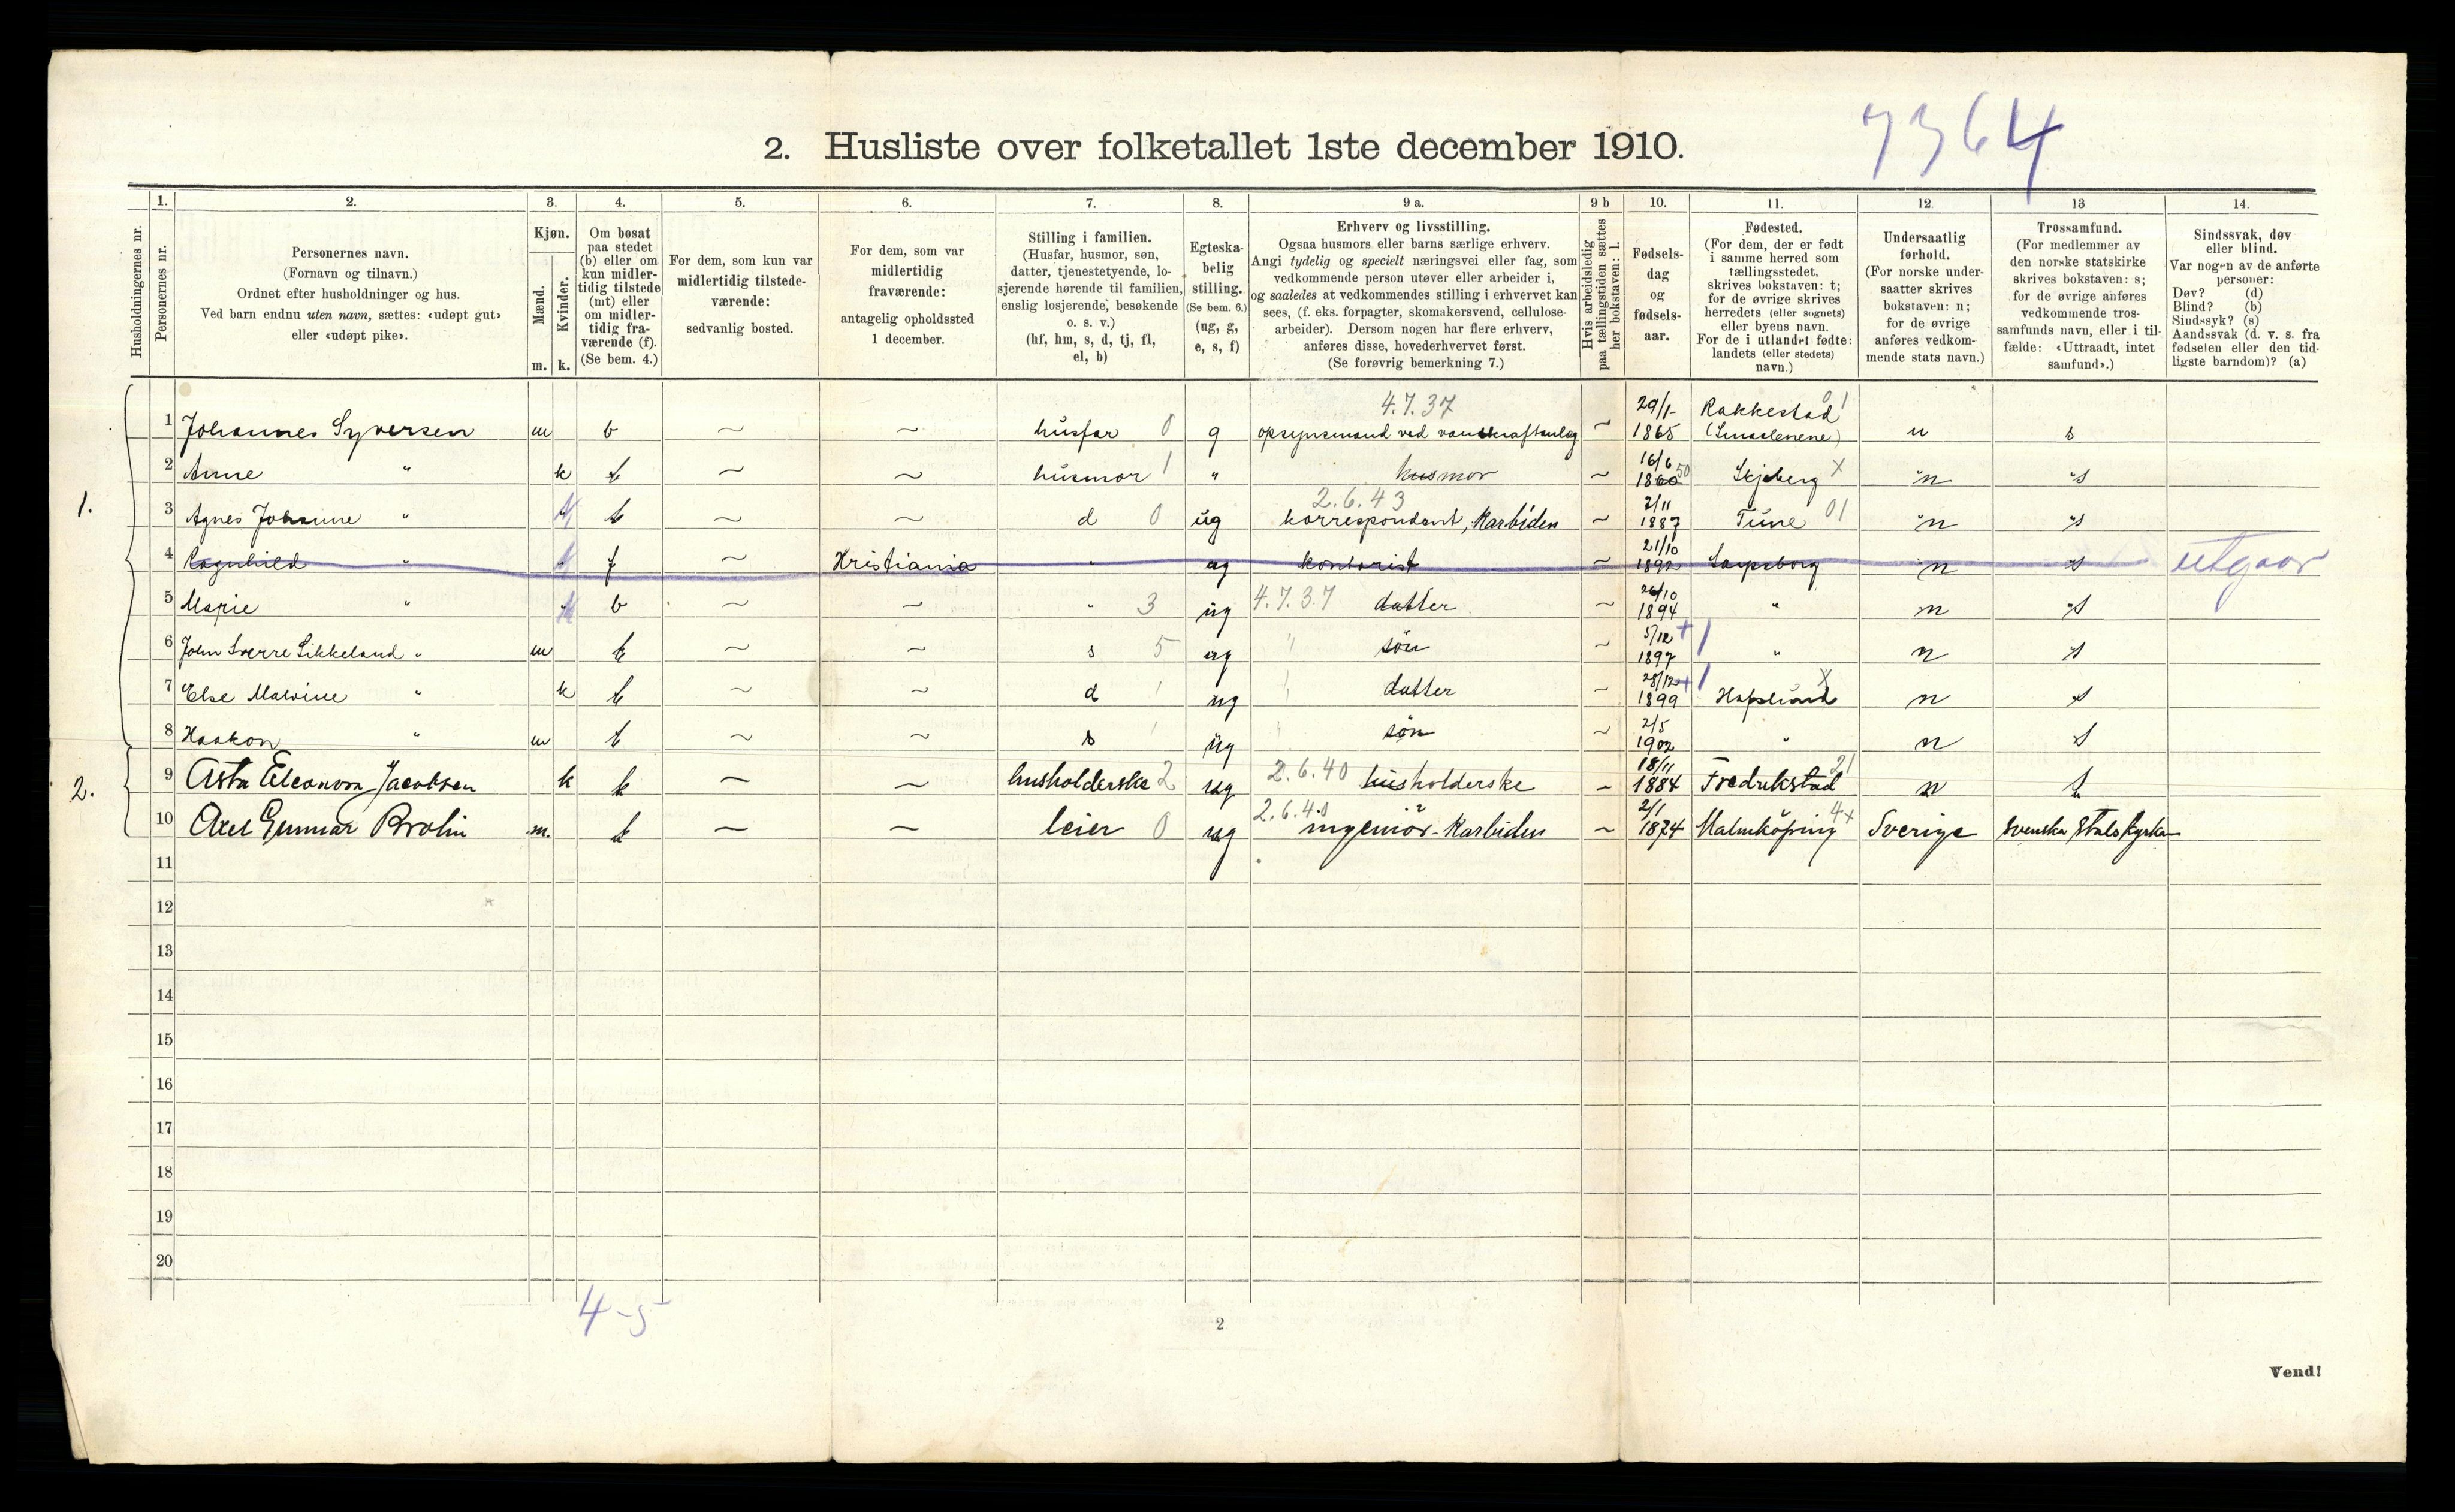 7364
2. Husliste over folketallet 1ste december 1910.
Husholdningernes nr.
1. Personernes nr.
2. Personernes navn.
(Fornavn og tilnavn.)
Ordnet efter husholdninger og hus.
Ved barn endnu uten navn, sættes: «udøpt gut»
eller «udøpt pike».
3. Kjøn.
Mænd. m.
Kvinder. k.
4. Om bosat
paa stedet
(b) eller om
kun midler-
tidig tilstede
(mt) eller
om midler-
tidig fra-
værende (f).
(Se bem. 4.)
5. For dem, som kun var
midlertidig tilstede-
værende:
sedvanlig bosted.
6. For dem, som var
midlertidig
fraværende:
antagelig opholdssted
1 december.
7. Stilling i familien.
(Husfar, husmor, søn,
datter, tjenestetyende, lo-
sjerende hørende til familien,
enslig losjerende, besøkende
o. s. v.)
(hf, hm, s, d, tj, fl,
el, b)
8. Egteska-
belig
stilling.
(Se bem. 6.)
(ug, g,
e, s, f)
9 a. Erhverv og livsstilling.
Ogsaa husmors eller barns særlige erhverv.
Angi tydelig og specielt næringsvei eller fag, som
vedkommende person utøver eller arbeider i,
og saaledes at vedkommendes stilling i erhvervet kan
sees, (f. eks. forpagter, skomakersvend, cellulose-
arbeider). Dersom nogen har flere erhverv,
anføres disse, hovederhvervet først.
(Se forøvrig bemerkning 7.)
9 b Hvis arbeidsledig
paa tællingstiden sættes
her bokstaven: l.
10. Fødsels-
dag
og
fødsels-
aar.
11. Fødested.
(For dem, der er født
i samme herred som
tællingsstedet,
skrives bokstaven: t;
for de øvrige skrives
herredets (eller sognets)
eller byens navn.
For de i utlandet fødte:
landets (eller stedets)
navn.)
12. Undersaatlig
forhold.
(For norske under-
saatter skrives
bokstaven: n;
for de øvrige
anføres vedkom-
mende stats navn.)
13 Trossamfund.
(For medlemmer av
den norske statskirke
skrives bokstaven: s;
for de øvrige anføres
vedkommende tros-
samfunds navn, eller i til-
fælde: «Uttraadt, intet
samfund».)
14. Sindssvak, døv
eller blind.
Var nogen av de anførte
personer:
Døv? (d)
Blind? (b)
Sindssyk? (s)
Aandssvak (d. v. s. fra
fødselen eller den tid-
ligste barndom)? (a)
1.
4.7.37 29/1- Rakkestad 01
1 Johannes Syversen m b ~ ~ husfar 0 g opsynsmand ved vandkraftanlæg ~ 1865 (Smaalenene) n s
2 Anne " k b ~ ~ husmor 1 " husmor ~ 16/6 1860 50 Skjeberg x "n "s
2.6.43
3 Agnes Johanne " k b ~ ~ d 0 ug korrespondent, Karbiden ~ 2/11 1887 Tune 01 "n "s
4 Ragnhild " k f ~ Kristiania " ug kontorist ~ 21/10 1892 Sarpsborg "n s utgaar
5 Marie " k b ~ ~ " 3 ug 4.7.37 datter ~ 26/10 1894 " n s
6 John Sverre Sikkeland " m b ~ ~ s 5 ug " søn ~ 5/12 + 1 1897 " n s
7 Else Malvine " k b ~ ~ d ug datter ~ 28/12 + 1 1899 Hafslund x n s
8 Haakon " m b ~ ~ s ug " søn ~ 2/5 1902 " n s
2.
9 Asta Eleonora Jacobsen k b ~ ~ husholderske 2 ug 2.6.40 husholderske ~ 18/11 1884 Fredrikstad 21 n s
10 Axel Gunnar Brolin m. b ~ ~ leier 0 ug 2.6.40 ingeniør - Karbiden ~ 2/1 1874 Malmköping 4x Sverige Svenska Statskyrkan
11
12
13
14
15
16
17
18
19
20
4-5
2
Vend!